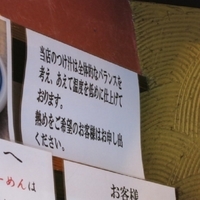 当店のつけ汁は全体的なバランスを
考え、あえて温度を低めに仕上げて
おります。
熱めをご希望のお客様はお申し出
ください。
へ
らーめんは
お客様